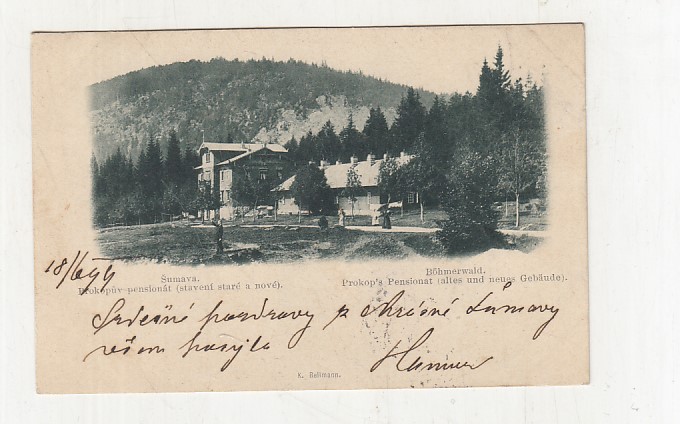 18/6 99
Šumava.
Prokopův pensionát (stavení staré a nové).
Böhmerwald.
Prokop's Pensionat (altes und neues Gebäude).
Srdečné pozdravy z krásné Šumavy
všem posýlá
K. Bellmann.